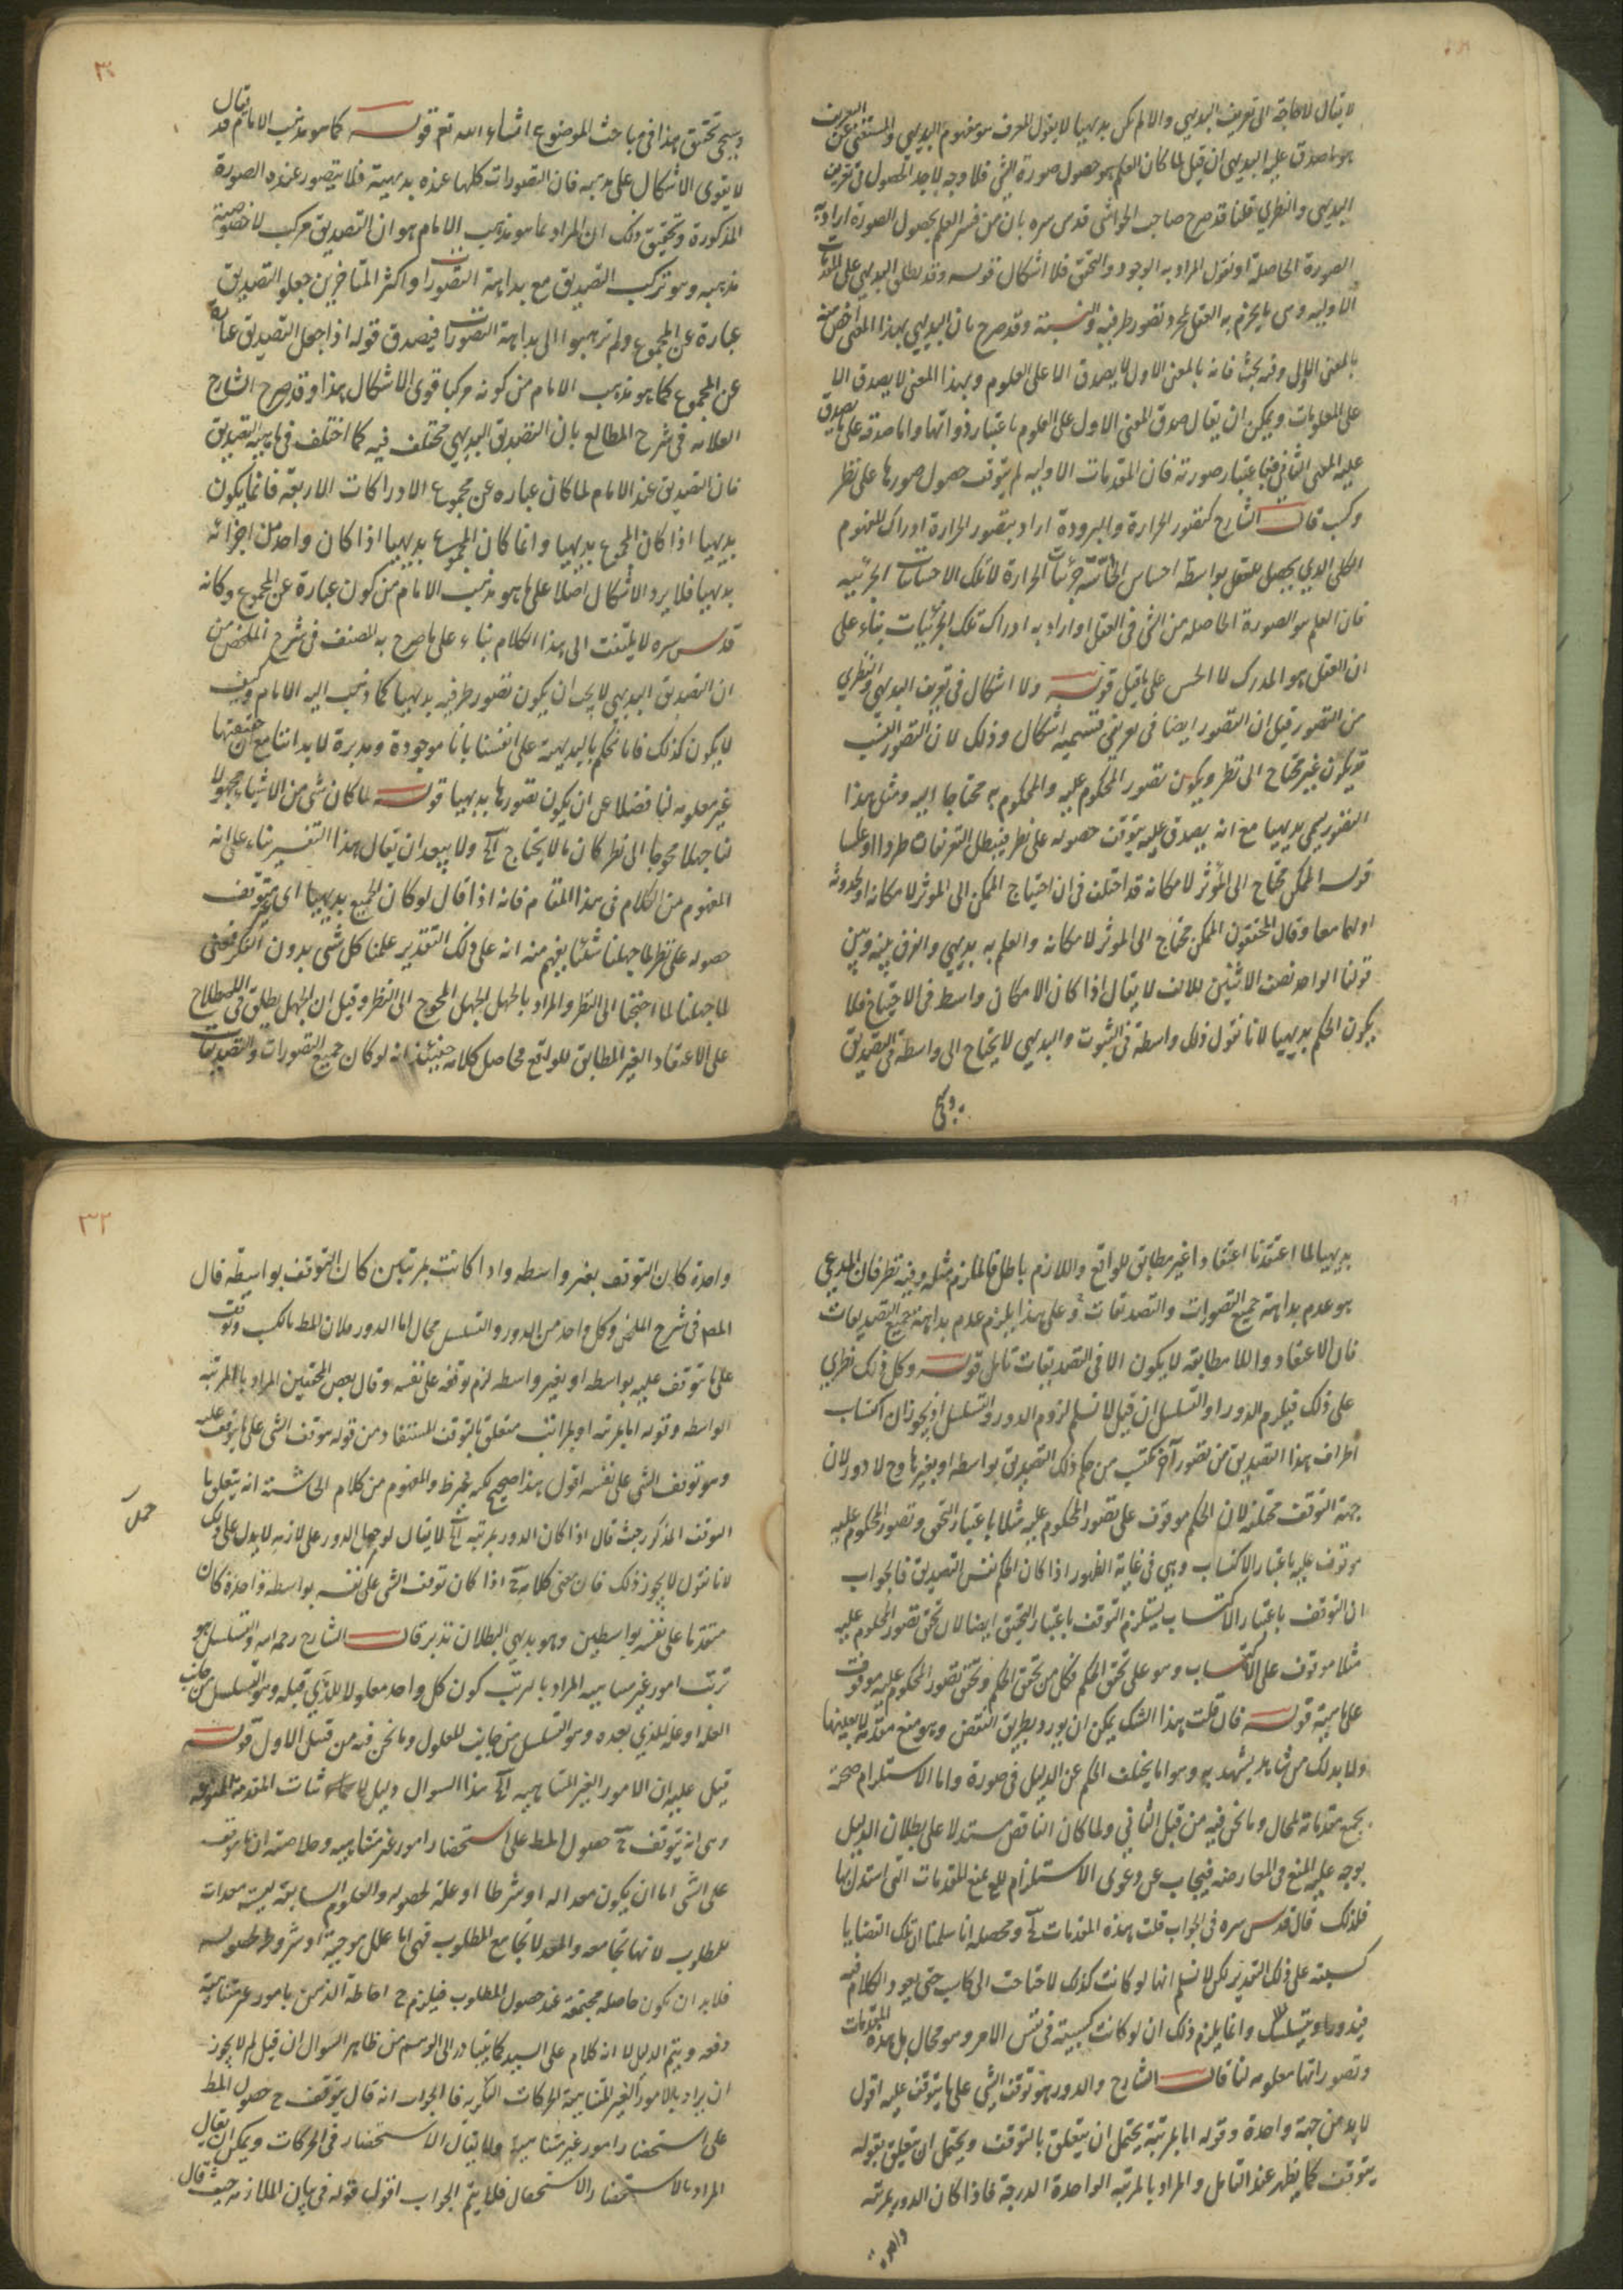 لا يقال لا حاجة الى تعريف البديهي والا لم يكن بديهيا لانا نقول المعرف هو مفهوم البديهي والمستغنى عن التعريف
ما صدق عليه البديهي ان قيل لما كان العلم هو حصول صورة الشئ فلا وجه لاخذ الحصول في تعريف
البديهي والنظري قلنا قد صرح صاحب الحواشى قدس سره بان من فسر العلم بحصول الصورة اراد به
الصورة الحاصلة او نقول المراد به الوجود والتحقق فلا اشكال قوله وقد يطلق البديهي على المقدمات
الاولية وهى ما يجزم به العقل بمجرد تصور طرفيه والنسبة وقد صرح بان البديهي بهذا المعنى اخص منه
بالمعنى الاول وفيه بحث فانه بالمعنى الاول لا يصدق الا على العلوم وبهذا المعنى لا يصدق الا
على المعلومات ويمكن ان يقال صدق المعنى الاول على العلوم باعتبار ذواتها واما صدقه على ما يصدق
عليه المعنى الثاني فباعتبار صورته فان المقدمات الاولية لم يتوقف حصول صورها على نظر
وكسب قال الشارح كتصور الحرارة والبرودة اراد بتصور الحرارة ادراك المفهوم
الكلى الذي يحصل للعقل بواسطة احساس الحاسة جزئيات الحرارة لا تلك الاحساسات الجزئية
فان العلم هو الصورة الحاصلة من الشئ في العقل او اراد به ادراك تلك الجزئيات بناء على
ان العقل هو المدرك لا الحس على ما قيل قوله ولا اشكال في تعريف البديهي والنظري
من التصور قيل ان التصور ايضا في تعريفي قسميه اشكال وذلك لان التصور
قد يكون غير محتاج الى نظر ويكون تصور المحكوم عليه والمحكوم به محتاجا اليه ومثل هذا
التصور يسمى بديهيا مع انه يصدق عليه يتوقف حصوله على نظر فيبطل التعريفان طردا وعكسا
قوله الممكن محتاج الى المؤثر لامكانه قد اختلف في ان احتياج الممكن الى المؤثر لامكانه او لحدوثه
او لهما معا وقال المحققون الممكن محتاج الى المؤثر لامكانه والعلم به بديهي والفرق بينه وبين
قولنا الواحد نصف الاثنين للالف لا يقال اذا كان الامكان واسط في الاحتياج فلا
يكون الحكم بديهيا لانا نقول ذلك واسطة في الثبوت والبديهي لا يحتاج الى واسطة في التصديق
٣٠
وسيجئ تحقيق هذا في مباحث الموضوع ان شاء الله تع قوله كما هو مذهب الامام قد يقال
لا يقوى الاشكال على مذهبه فان التصورات كلها عنده بديهية فلا يتصور عنده الصورة
المذكورة وتحقيق ذلك ان المراد بما هو مذهب الامام هو ان التصديق مركب لا خصوصية
مذهبه وهو تركب التصديق مع بداهة التصورات واكثر المتأخرين جعلوا التصديق
عبارة عن المجموع ولم يذهبوا الى بداهة التصورات فيصدق قوله اذا جعل التصديق عبارة
عن المجموع كما هو مذهب الامام من كونه مركبا قوى الاشكال هذا وقد صرح الشارح
العلامة في شرح المطالع بان التصديق البديهي مختلف فيه كما اختلف في ماهية التصديق
فان التصديق عند الامام لما كان عبارة عن مجموع الادراكات الاربعة فانما يكون
بديهيا اذا كان المجموع بديهيا وانما كان المجموع بديهيا اذا كان كل واحد من اجزائه
بديهيا فلا يرد الاشكال اصلا على ما هو مذهب الامام من كون عبارة عن المجموع وكانه
قدس سره لا يلتفت الى هذا الكلام بناء على ما صرح به المصنف في شرح الملخص من
ان التصديق البديهي لا يجب ان يكون تصور طرفيه بديهيا كما ذهب اليه الامام وكيف
لا يكون كذلك فانا نحكم بالبديهة على انفسنا بانا موجودة ومدبرة لابداننا مع ان حقيقتها
غير معلومة لنا فضلا عن ان يكون تصورها بديهيا قوله لما كان شئ من الاشياء مجهولا
لنا جهلا محوجا الى نظر كان ما لا يحتاج الخ ولا يبعد ان يقال هذا التفسير بناء على انه
المفهوم من الكلام في هذا المقام فانه اذا قال لو كان الجميع بديهيا اى غير متوقف
حصوله على نظر لما جهلنا شيئا يفهم منه انه على ذلك التقدير علمنا كل شئ بدون الفكر فمعنى
لما جهلنا لما احتجنا الى النظر والمراد بالجهل الجهل المحوج الى النظر وقيل ان الجهل يطلق في الاصطلاح
على الاعتقاد الغير المطابق للواقع فحاصل كلامه حينئذ انه لو كان جميع التصورات والتصديقات
بديهيا لما اعتقدنا اعتقادا غير مطابق للواقع واللازم باطل فالملزوم مثله وفيه نظر فان المدعى
هو عدم بداهة جميع التصورات والتصديقات وعلى هذا يلزم عدم بداهة جميع التصديقات
فان الاعتقاد واللا مطابقة لا يكون الا في التصديقات تامل قوله وكل ذلك نظري
على ذلك فيلزم الدور او التسلسل ان قيل لا نسلم لزوم الدور والتسلسل اذ يجوز ان اكتساب
اطراف هذا التصديق من تصور آخر مكتسب من حكم ذلك التصديق بواسطة او بغيرها وح لا دور لان
جهة التوقف مختلفة لان الحكم موقوف على تصور المحكوم عليه مثلا باعتبار التحقق وتصور المحكوم عليه
موقوف عليه باعتبار الاكتساب وهى في غاية الظهور اذا كان الحكم نفس التصديق فالجواب
ان التوقف باعتبار الاكتساب يستلزم التوقف باعتبار التحقق ايضا لان تحقق تصور المحكوم عليه
مثلا موقوف على الاكتساب وهو على تحقق الحكم فكل من تحقق الحكم وتحقق تصور المحكوم عليه موقوف
على صاحبه قوله فان قلت هذا الشك يمكن ان يورد بطريق النقض وهو منع مقدمة لا بعينها
ولا بد لك من شاهد يشهد به وهو اما تخلف الحكم عن الدليل في صورة واما الاستلزام صحة
جميع مقدماته لمحال وما نحن فيه من قبيل الثاني ولما كان الناقض مستدلا على بطلان الدليل
يوجه عليه المنع والمعارضة فيجاب عن دعوى الاستلزام بمنع المقدمات التى استدل بها
فلذلك قال قدس سره في الجواب قلت هذه المقدمات الخ ومحصله انا سلمنا ان تلك القضايا
كسبية على ذلك التقدير لكن لا نسلم انها لو كانت كذلك لاحتاجت الى كاسب حتى يعود الكلام فيه
فيدور او يتسلسل وانما يلزم ذلك ان لو كانت كسبية في نفس الامر وهو محال بل هذه المقدمات
وتصوراتها معلومة لنا قال الشارح والدور هو توقف الشئ على ما يتوقف عليه اقول
لا بد من جهة واحدة وقوله اما بمرتبة يحتمل ان يتعلق بالتوقف ويحتمل ان يتعلق بقوله
يتوقف كما يظهر عند التامل والمراد بالمرتبة الواحدة الدرجة فاذا كان الدور بمرتبة
واحدة
٣٢
واحدة كان التوقف بغير واسطة واذا كانت بمرتبتين كان التوقف بواسطة قال
المص في شرح الملخص وكل واحد من الدور والتسلسل محال اما الدور فلان المط بالكسب وتوقف
على ما يتوقف عليه بواسطة او بغير واسطة لزم توقفه على نفسه وقال بعض المحققين المراد بالمرتبة
الواسطة وقوله اما بمرتبة او بمراتب متعلق بالتوقف المستفاد من قوله هو توقف الشئ على ما يتوقف عليه
وهو توقف الشئ على نفسه اقول هذا صحيح لكنه غير والمفهوم من كلام الحاشية انه يتعلق بما
التوقف المذكور حيث قال اذا كان الدور بمرتبة الخ لا يقال لو حمل الدور على لازمه لا يدل على ذلك
لانا نقول لا يجوز ذلك فان معنى كلامه ح اذا كان توقف الشئ على نفسه بواسطة واحدة كان
متقدما على نفسه بواسطتين وهو بديهي البطلان تدبر قال الشارح رحمه الله والتسلسل هو
ترتب امور غير متناهية المراد بالترتب كون كل واحد معلولا للذي قبله وهو التسلسل من جانب
العلة او علة للذي بعده وهو التسلسل من جانب المعلول وما نحن فيه من قبيل الاول قوله
قيل عليه ان الامور الغير المتناهية الخ هذا السوال دليل لاثبات المقدمة الممنوعة
وهى انه يتوقف ح حصول المط على استحضار امور غير متناهية وخلاصته ان ما يتوقف
على الشئ اما ان يكون معدا له او شرطا او علة لحصوله والعلوم السابقة ليست معدات
للمطلوب لانها تجامعه والمعد لا يجامع المطلوب فهى اما علل موجبة او شروط لحصوله
فلا بد ان يكون حاصله مجتمعة عند حصول المطلوب فيلزم ح احاطة الذهن بامور غير متناهية
دفعة ويتم الدليل لا انه كلام على السيد كما يتبادر الى الوهم من ظاهر السوال ان قيل لم لا يجوز
ان يراد بالامور الغير المتناهية الحركات الفكرية فالجواب انه قال يتوقف ح حصول المط
على استحضار امور غير متناهية ولا يقال الاستحضار في الحركات ويمكن ان يقال
المراد بالاستحضار الاستحصال فلا يتم الجواب اقول قوله في بيان الملازمة حيث قال